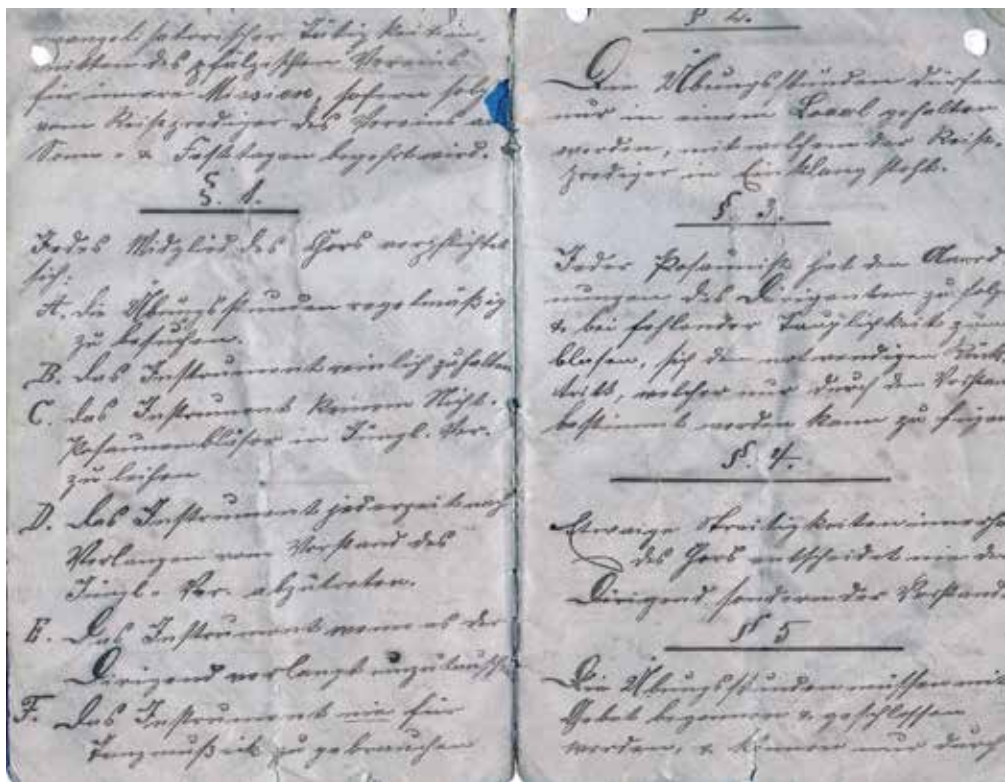 evangelisatorischer Tätigkeit in-
mitten des pfälzischen Vereins
für innere Mission, sofern solch
vom Reiseprediger des Vereins an
Sonn- & Festtagen begehrt wird.
§. 1.
Jedes Mitglied des Chors verpflichtet
sich:
A. die Übungsstunden regelmäßig
zu besuchen.
B. Das Instrument reinlich zu halten
C. Das Instrument keinem Nicht-
Posaunenbläser im Jüngl. Ver.
zu leihen
D. Das Instrument jederzeit nach
Verlangen vom Vorstand des
Jüngl. Ver. abzutreten.
E. Das Instrument wenn es der
Dirigend verlangt umzutausche
F. Das Instrument nie für
Tanzmusik zu gebrauchen
§ 2.
Die Übungsstunden dürfen
nur in einem Local gehalten
werden, mit welchem der Reise-
prediger in Einklang steht.
§ 3.
Jeder Posaunist hat den Anord
nungen des Dirigenten zu folg
& bei fehlender Tauglichkeit zum
blasen, sich dem notwendigen Rück
tritt, welcher nur durch den Vorstan
bestimmt werden kann zu fügen
§. 4.
Etwaige Streitigkeiten innerh
des Chors entscheidet nie de
Dirigend, sondern der Vorstand
§ 5
Die Übungsstunden müssen mit
Gebet begonnen & geschlossen
werden, & können nur durch